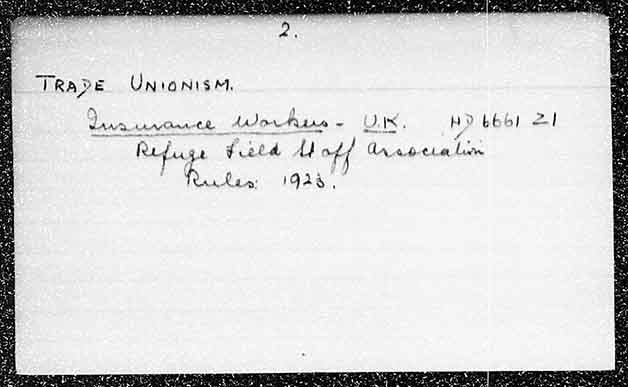 2.
TRADE UNIONISM.
Insurance Workers - U.K. HD 6661 Z1
Refuge Field Staff Association
Rules: 1923.